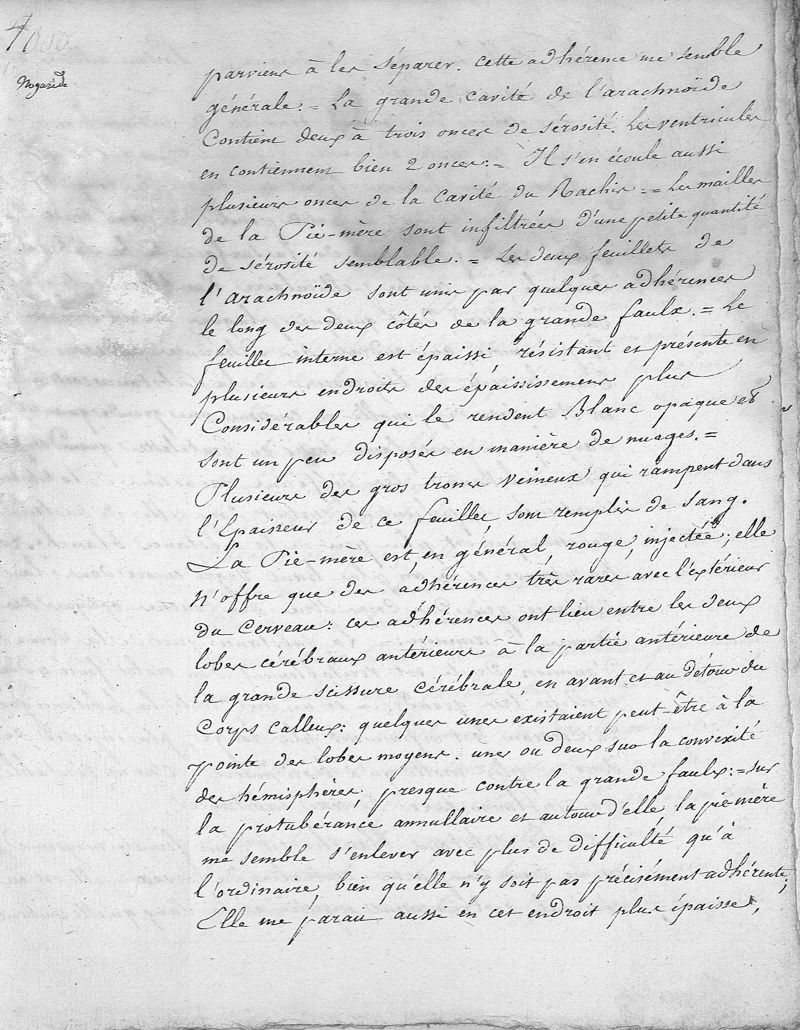 4
parviens à les séparer. cette adhérence me semble
générale. = La grande cavité de l'arachnoïde
Contient deux à trois onces de sérosité. Les ventricules
en contiennent bien 2 onces. = Il s'en écoule aussi
plusieurs onces de la Cavité du Rachis. = Les mailles
de la Pie-mère sont infiltrées d'une petite quantité
de sérosité semblable. = Les deux feuillets de
l'arachnoïde sont unis par quelques adhérences
le long des deux côtés de la grande faulx. = Le
feuillet interne est épaissi résistant et présente en
plusieurs endroits des épaississemens plus
Considérables qui le rendent Blanc opaque et
sont un peu disposés en manière de nuages. =
Plusieurs des gros troncs veineux qui rampent dans
l'Epaisseur de ce feuillet sont remplis de sang.
La Pie-mère est, en général, rouge, injectée; elle
n'offre que des adhérences très rares avec l'extérieur
du Cerveau: ces adhérences ont lieu entre les deux
lobes cérébraux antérieurs à la partie antérieure de
la grande scissure Cérébrale, en avant et au détour du
Corps Calleux: quelques unes existaient peut-être à la
pointe des lobes moyens. une ou deux sur la convexité
des hémisphères, presque contre la grande faulx: = sur
la protubérance annullaire et autour d'elle, la pie mère
me semble s'enlever avec plus de difficulté qu'à
l'ordinaire, bien qu'elle n'y soit pas précisément adhérente;
Elle me parait aussi en cet endroit plus épaisse,